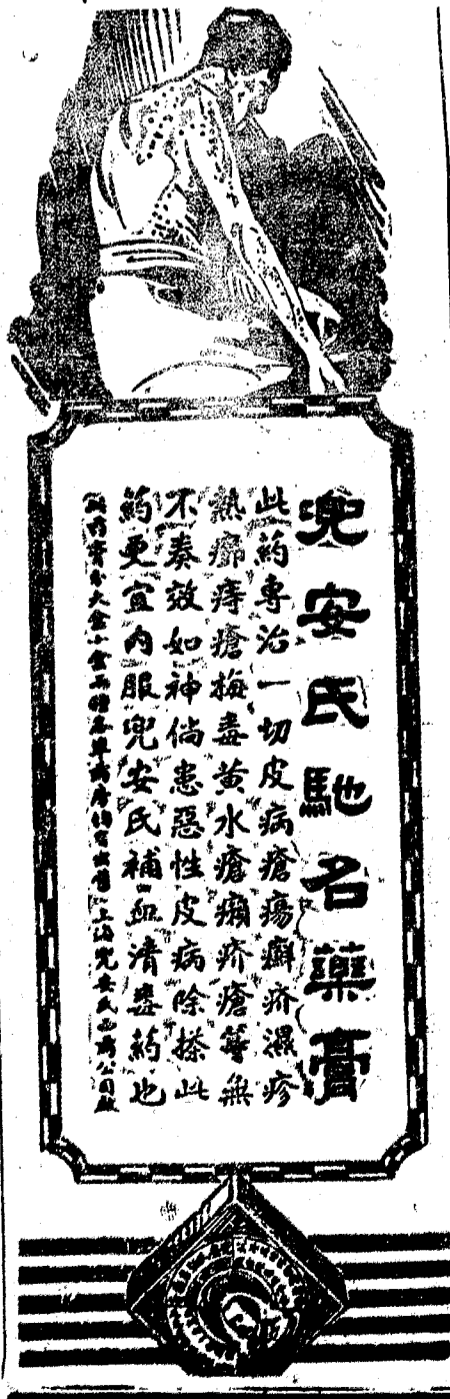 兜安氏馳名藥膏
此葯專治一切皮病瘡瘍癬疥濕疹
熱痱痔瘡梅毒黃水瘡癩疥瘡等無
不奏效如神倘患惡性皮病除搽此
葯更宜內服兜安氏補血清毒葯也
分大盒小盒兩種各埠藥房均有出售 上海兜安氏西葯公司啟